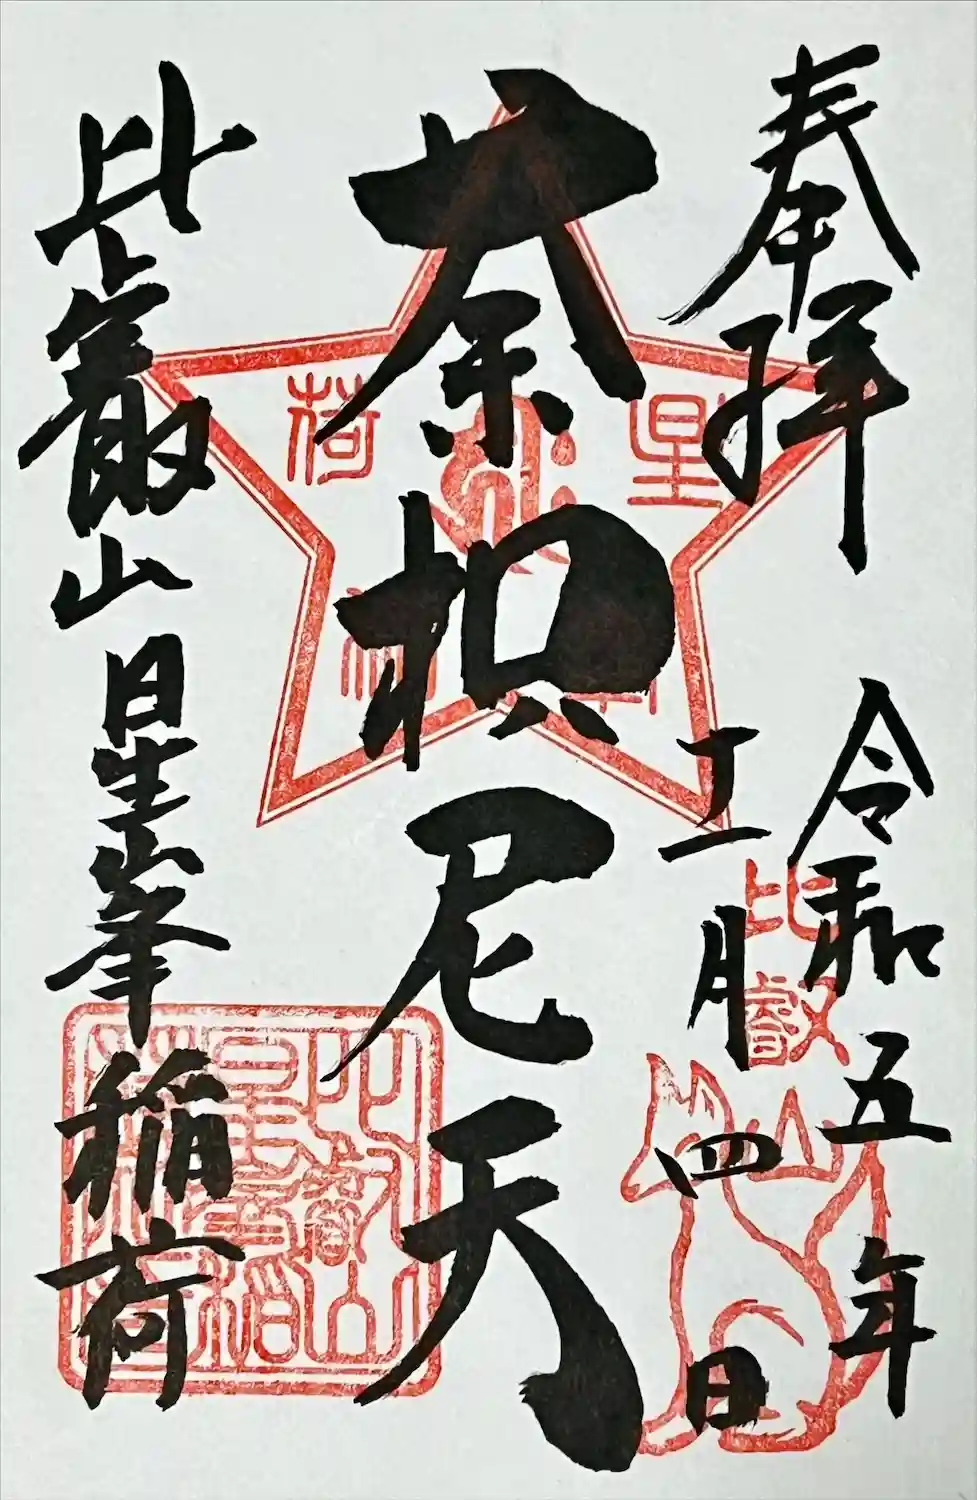 奉拝
令和五年
十一月四日
荼枳尼天
比叡山星峯稲荷
比叡
星
荷